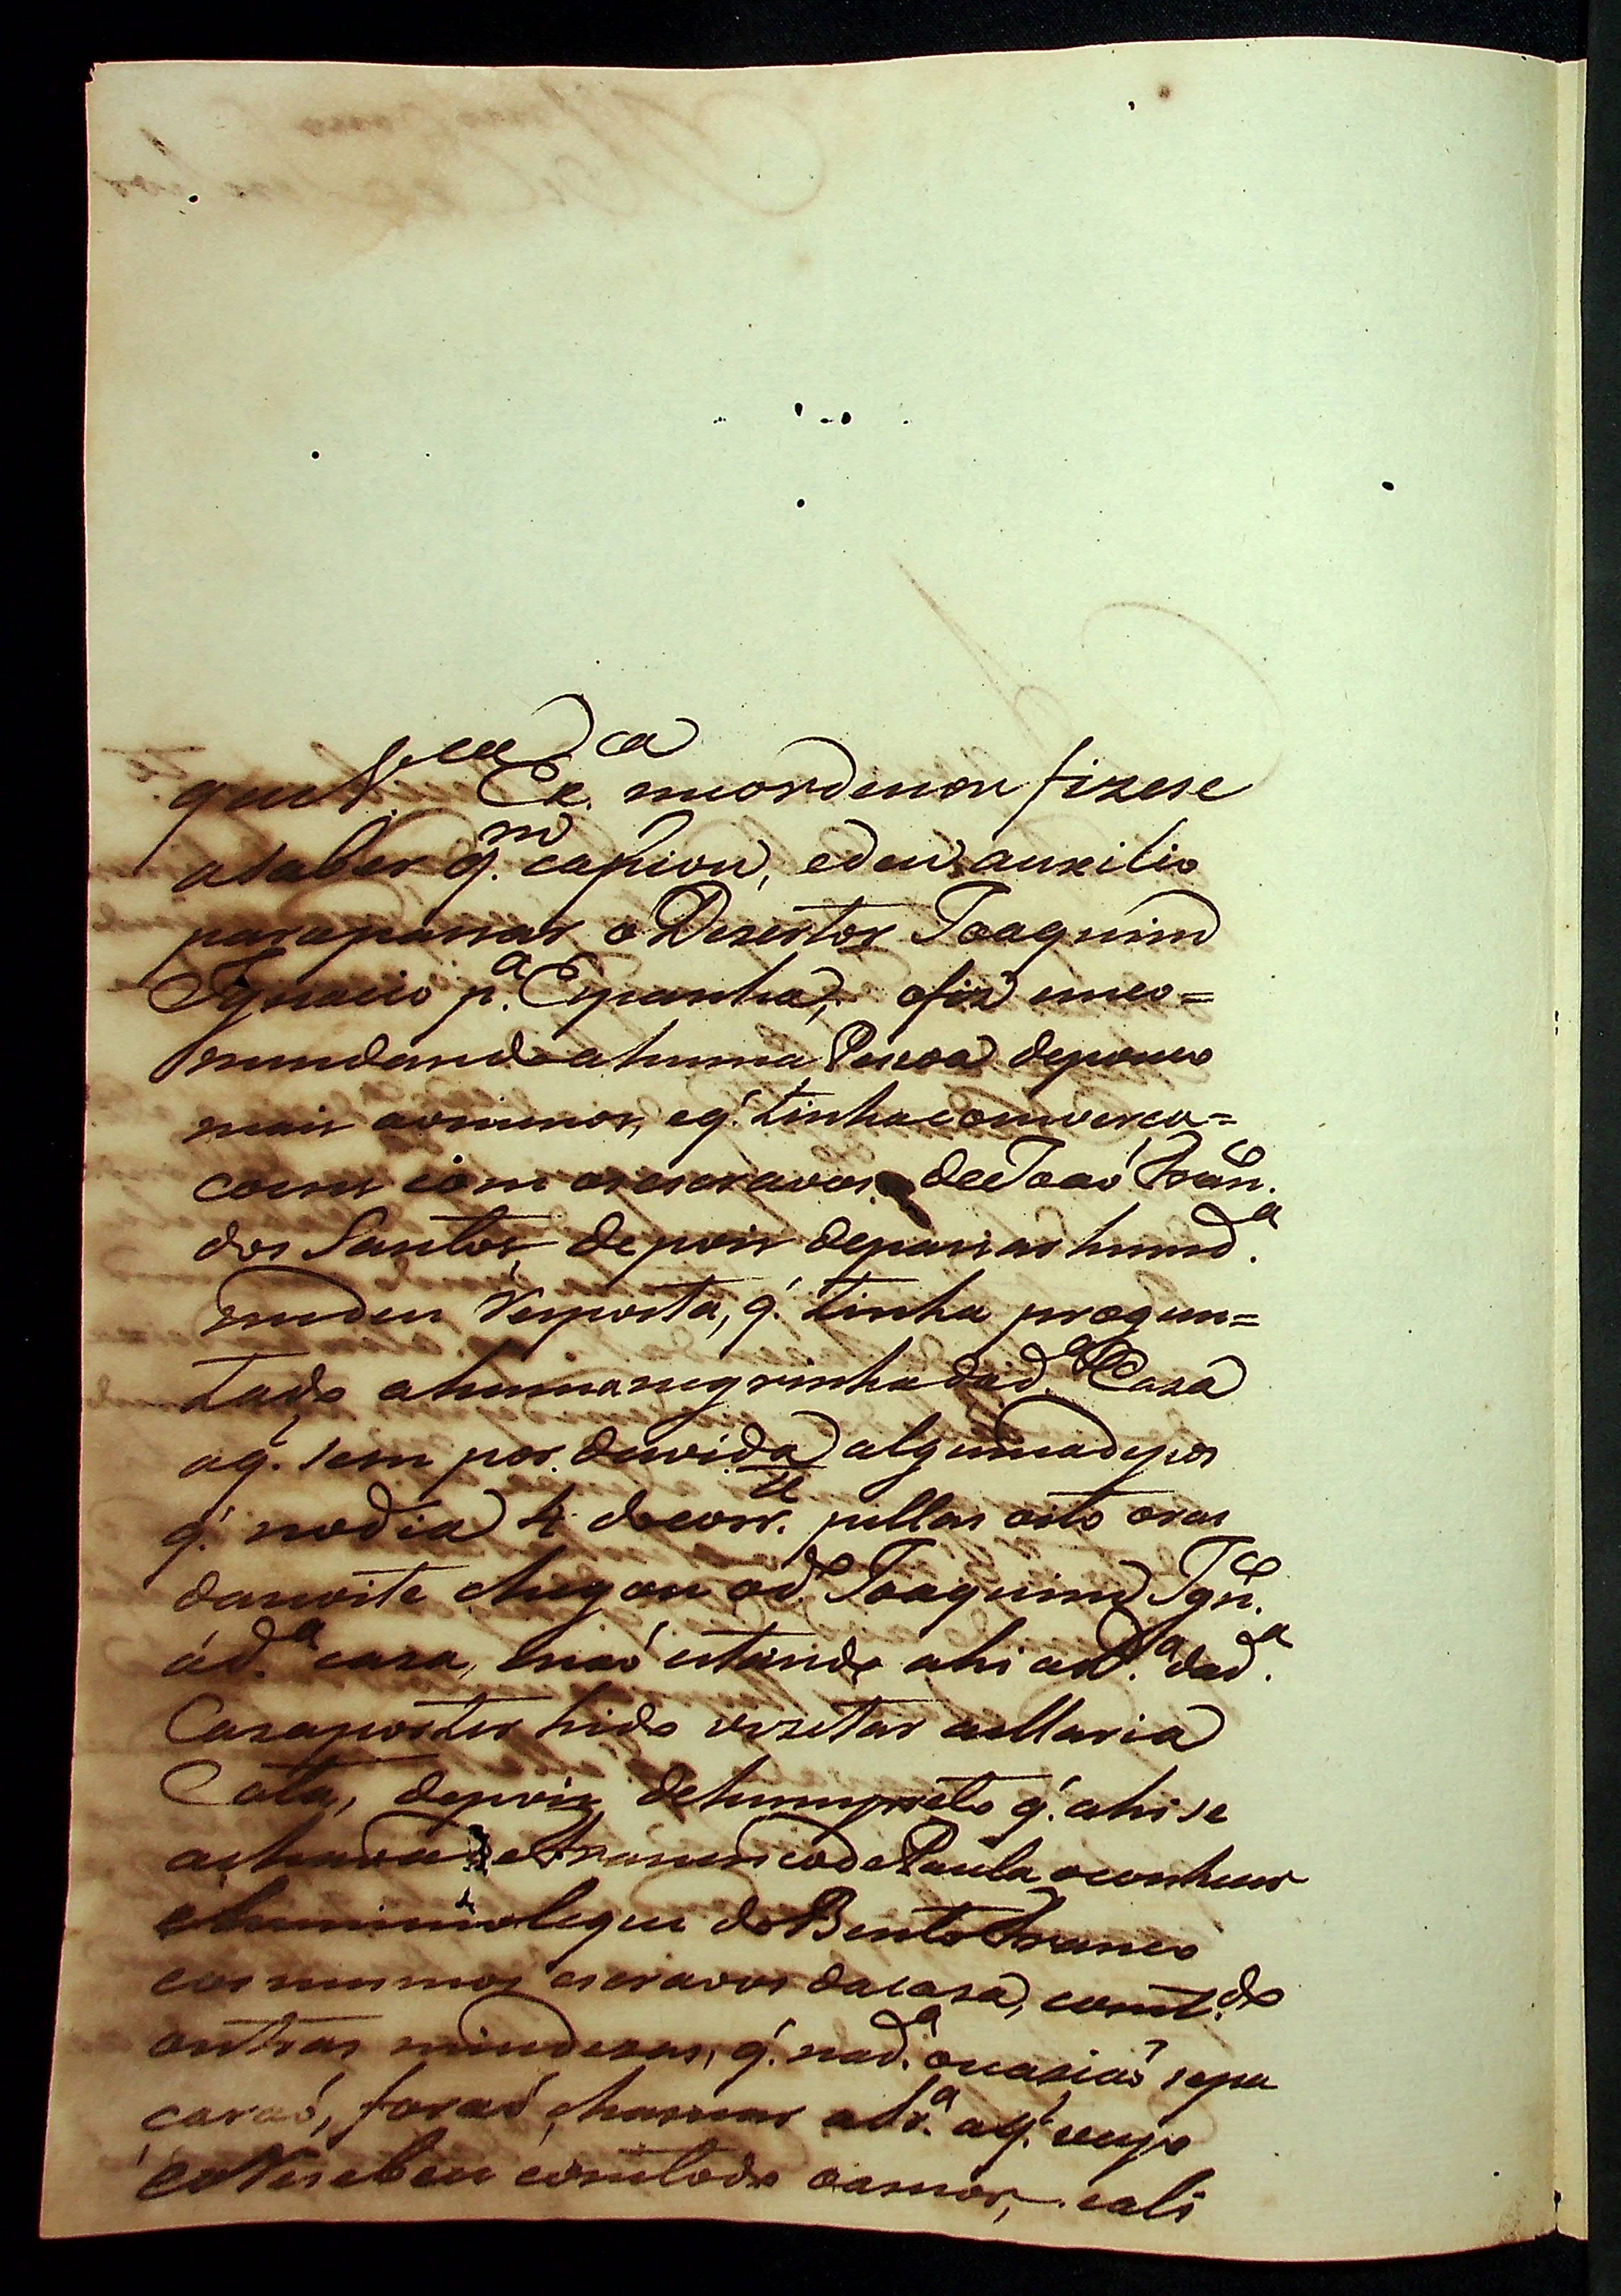 que V. Ex.cia me ordenou fizese
a saber q.m capiou, e deu auxilio
para pasar o Dezertor Joaquim
Ignacio p.a Espanha, o fiz emco=
mendando a huma Pesoa de pouco
mais ou menos, e q. tinha comverca=
coens com os escravos de Joaó Fran.co
dos Santos, depois de pasar hum d.a
me deu Resposta, q. tinha pregun=
tado a huma negrinha da d.a Casa
a q. sem por duvida alguma depos
q. no dia 4 do corr.te pellas oito oras
da noite chegou o d.o Joaquim Ign.co
á d.a casa, e naó estando ahi a Sr.a da d.a
Casa por ter hido vizetar a Maria
Cota, depois de hum preto q. ahi se
achava de Francisco de Paula o conhecer
e hum moleque do Bento Franco
e os mesmos escravos da casa, com t.do
outras miudezas, q. na d.a ocasiaó se pa
caraó, foraó chamar a Sr.a a q. veyo
e o Resebeu com todo o amor, e ali